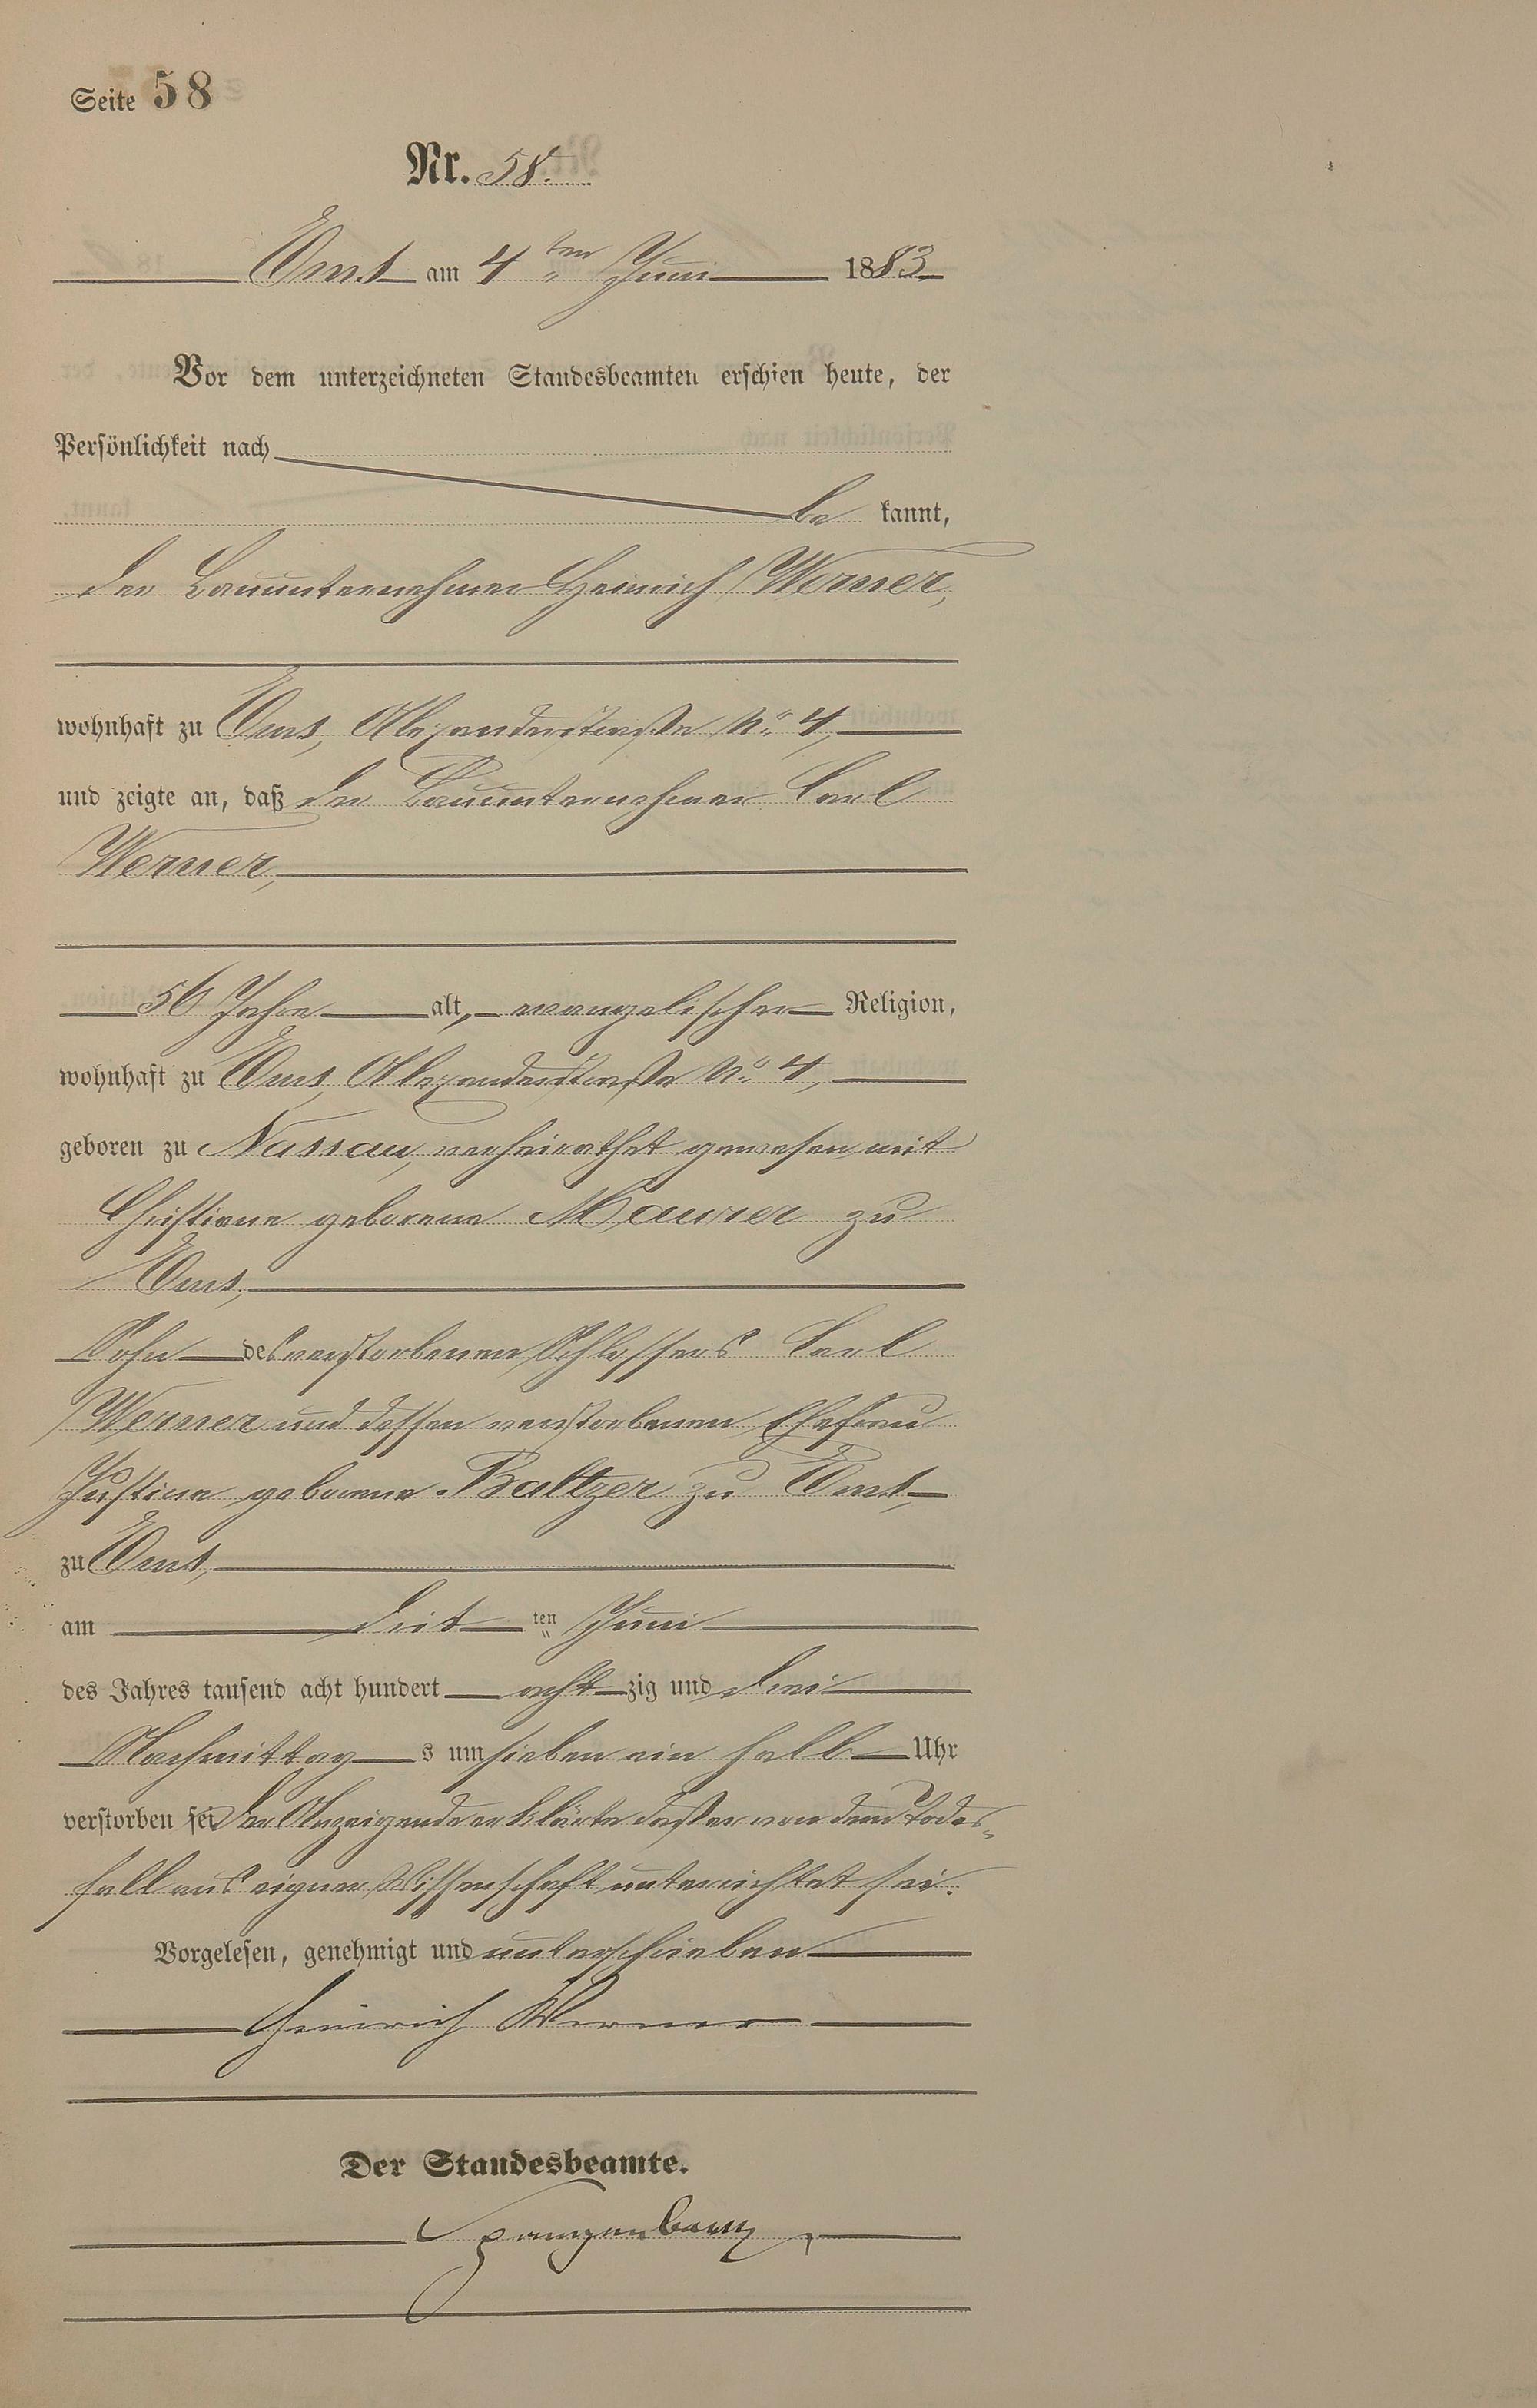 Seite 58
Nr. 58.
Ems am 4ten Juni 1883
Vor dem unterzeichneten Standesbeamten erschien heute, der
Persönlichkeit nach
be kannt,
der Bauunternehmer Heinrich Werner,
wohnhaft zu Ems, Alexanderstraße No. 4,
und zeigte an, daß der Bauunternehmer Carl
Werner,
56 Jahre alt, evangelischer Religion,
wohnhaft zu Ems, Alexanderstraße No. 4,
geboren zu Nassau, verheirathet gewesen mit
Christiane geborene Maurer zu
Ems,
Sohn des verstorbenen Schlossers Carl
Werner und dessen verstorbenen Ehefrau
Justine geborene Baltzer zu Ems,
zu Ems,
am dritten Juni
des Jahres tausend acht hundert achtzig und drei
Nachmittags um sieben ein halb Uhr
verstorben sei. Der Anzeigende erklärte daß er von dem Todes-
fall aus eigner Wissenschaft unterrichtet sei.
Vorgelesen, genehmigt und unterschrieben
Heinrich Werner
Der Standesbeamte.
Spangenberg